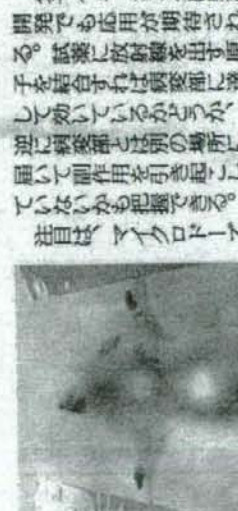 開発でも応用が期待され
る。試薬に放射線を出す原
子を結合すれば病変部に達
して効いているかどうか、
逆に病変部とは別の場所に
届いて副作用を引き起こし
ていないかも把握できる。
注目は、マイクロドーズ